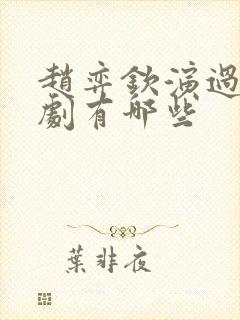 趙弈欽演過
劇有哪些
葉非夜